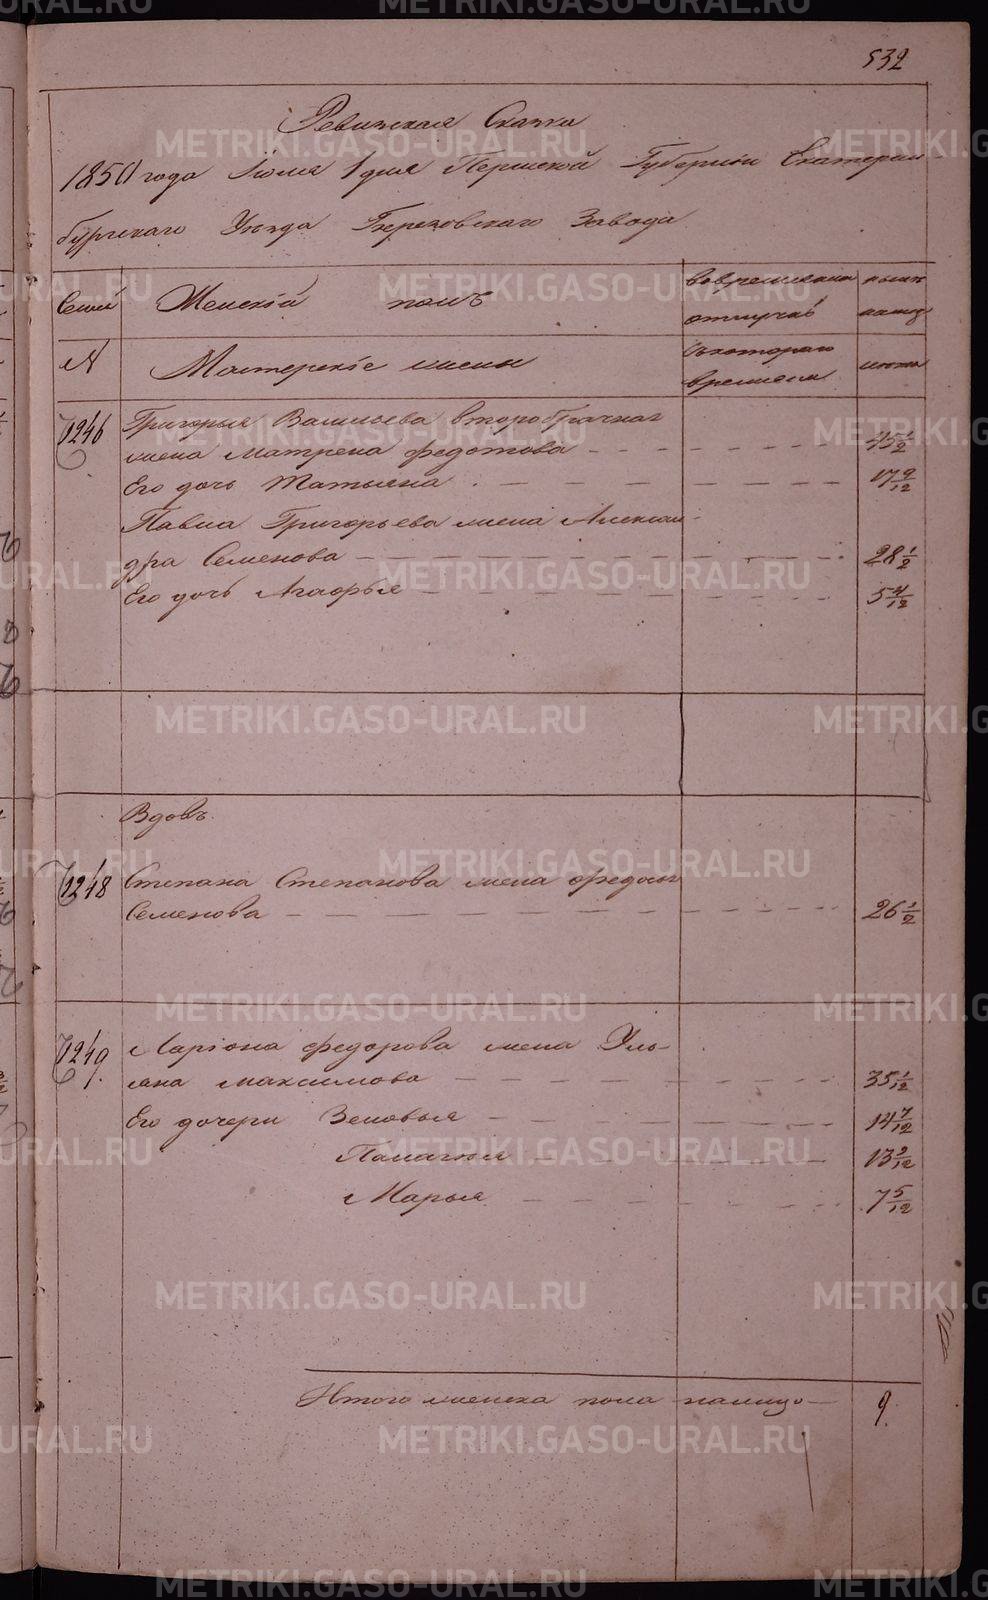 532
Ревизская Сказка
1850 года Июля 1 дня Пермской Губернiи Екатерин-
бургскаго Уезда Березовскаго Завода
Семьи
Женскiй полъ
во временной отлучкѣ
ныне на лицо
№
Мастерскiе жены
съ котораго времени
лета
1246
Григорья Васильева второбрачная
жена Матрена Федотова — 45 1/2
Его дочь Татьяна — 17 9/12
Павла Григорьева жена Алексан-
дра Семенова — 28 1/2
Его дочь Агафья — 5 4/12
Вдовъ
1248
Степана Степанова жена Федосья
Семенова — 26 1/2
1249.
Ларiона Федорова жена Уль-
яна Максимова — 35 1/12
Его дочери Зеновья — 14 7/12
Палагея — 13 2/12
Марья — 7 5/12
Итого женска пола налицо — 9.
METRIKI.GASO-URAL.RU